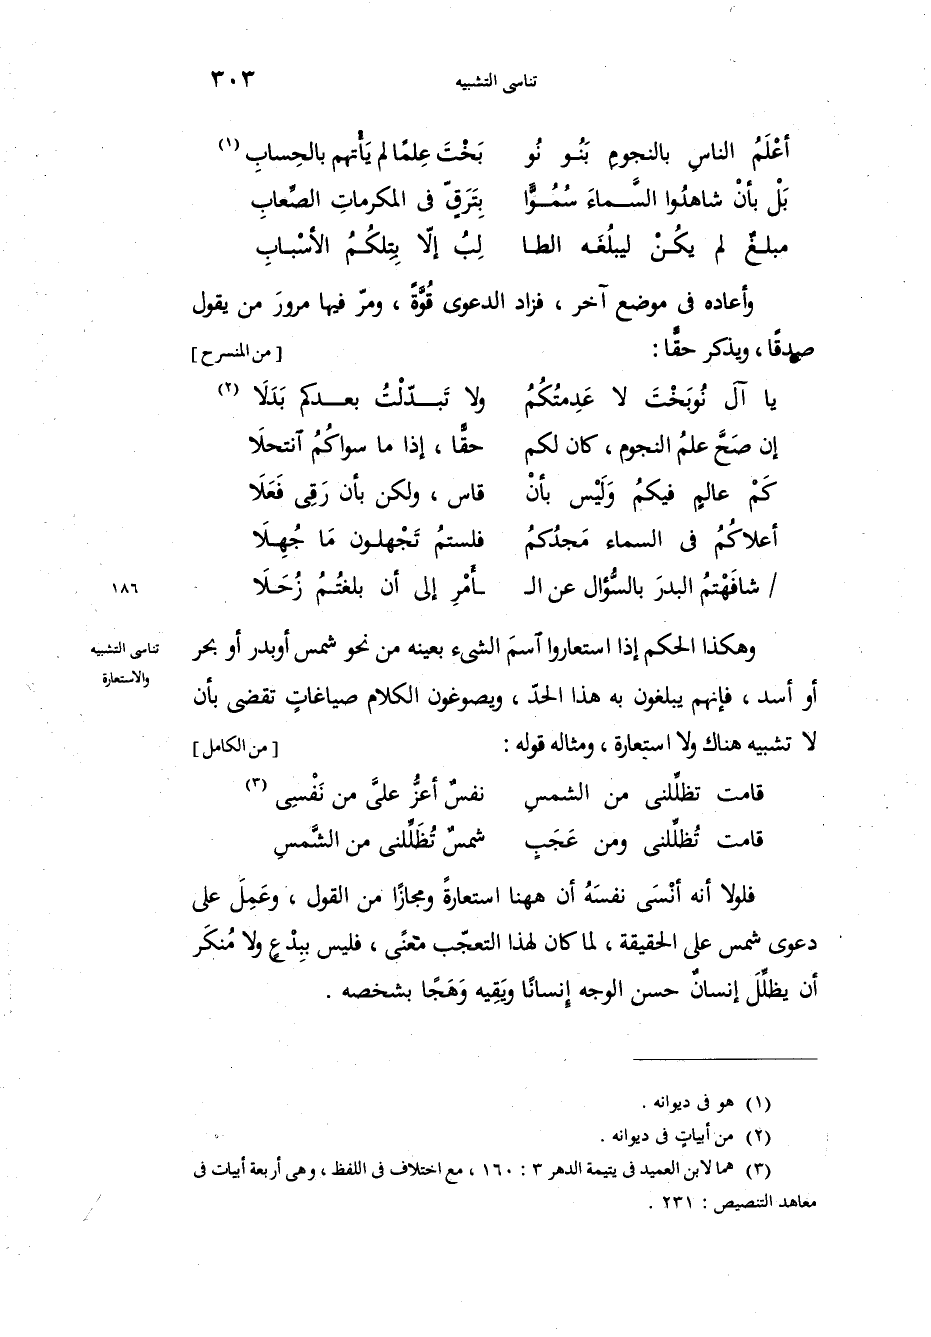 تناسى التشبيه ٣٠٣
أعْلَمُ الناسِ بالنجومِ بَنُو نُو بَخْتَ عِلمًا لم يَأْتهم بالحِسابِ (١)
بَلْ بأنْ شاهدُوا السَّماءَ سُمُوًّا بِتَرَقٍّ فى المكرماتِ الصِّعابِ
مبلغٌ لم يكُنْ ليبلُغَه الطا لِبُ إلّا بِتِلكُمُ الأسْبابِ
وأعاده فى موضع آخر ، فزاد الدعوى قُوَّةً ، ومرّ فيها مرورَ من يقول
صِدقًا ، ويذكر حقًّا : [ من المنسرح ]
يا آلَ نُوبَخْتَ لا عَدِمتُكُمُ ولا تَبدّلْتُ بعدكم بَدَلَا (٢)
إن صَحَّ علمُ النجوم ، كان لكم حقًّا ، إذا ما سواكُمُ آنتحلَا
كَمْ عالمٍ فيكمُ وَلَيْس بأنْ قاس ، ولكن بأن رَقِى فَعَلَا
أعلاكُمُ فى السماء مَجدُكمُ فلستمُ تَجْهلون مَا جُهِلَا
/ شافَهْتمُ البدرَ بالسُّؤال عن الـ ـأَمْرِ إلى أن بلغتُمُ زُحَلَا ١٨٦
وهكذا الحكم إذا استعاروا آسمَ الشىء بعينه من نحو شمس أوبدر أو بحر تناسى التشبيه
والاستعارة
أو أسد ، فإنهم يبلغون به هذا الحدّ ، ويصوغون الكلام صياغاتٍ تقضى بأن
لا تشبيه هناك ولا استعارة ، ومثاله قوله : [ من الكامل ]
قامت تظلِّلنى من الشمسِ نفسٌ أعزُّ علىَّ من نَفْسِى (٣)
قامت تُظلِّلنى ومن عَجَبٍ شمسٌ تُظَلِّلنى من الشَّمسِ
فلولا أنه أنْسَى نفسَهُ أن ههنا استعارةً ومجازًا من القول ، وعَمِلَ على
دعوى شمس على الحقيقة ، لما كان لهذا التعجّب معنًى ، فليس ببِدْعٍ ولا مُنكَر
أن يظلِّلَ إنسانٌ حسن الوجه إنسانًا ويَقِيه وَهَجًا بشخصه .
(١) هو فى ديوانه .
(٢) من أبياتٍ فى ديوانه .
(٣) هما لابن العميد فى يتيمة الدهر ٣ : ١٦٠ ، مع اختلاف فى اللفظ ، وهى أربعة أبيات فى
معاهد التنصيص : ٢٣١ .